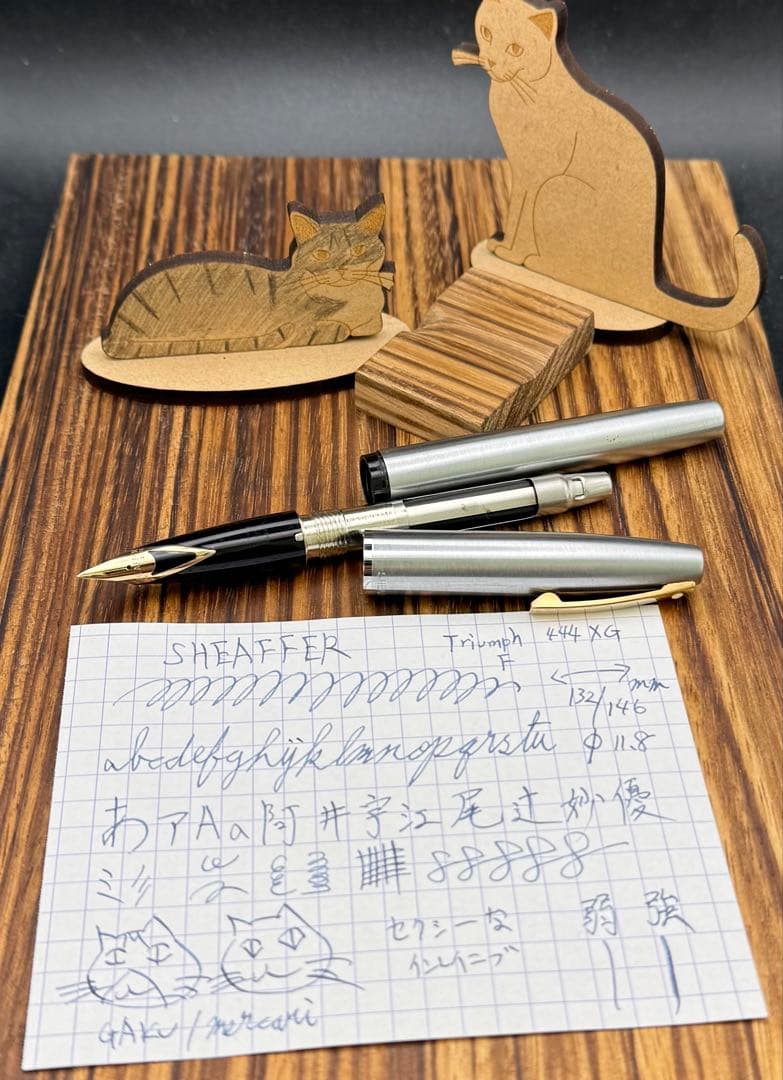 SHEAFFER
Triumph 444 XG
F
132/146 mm
abcdefghijklmnopqrstu
φ 11.8
あァAa阿井宇江尾辻妙優
セクシーな 弱 強
インレイニブ
GAKU/mercari